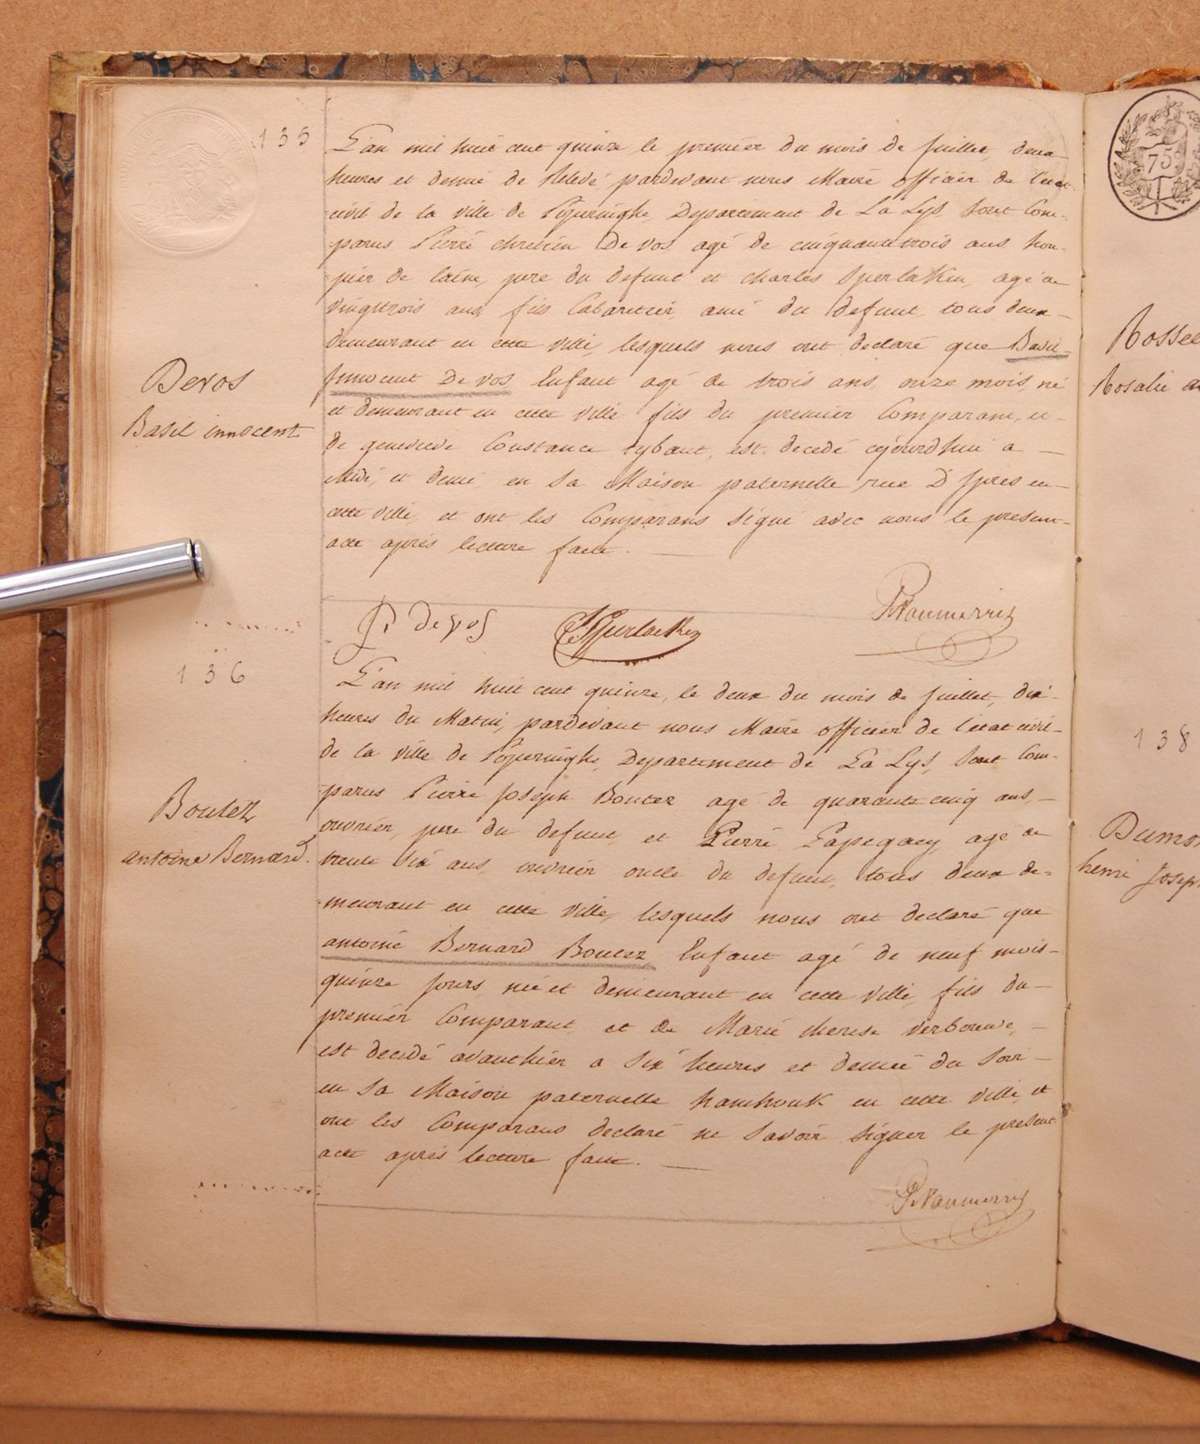 135
L'an mil huit cent quinze, le premier du mois de Juillet, deux
heures et demie de relevé, pardevant nous Maire officier de l'etat
civil de la ville de Poperinghe, Departement de La Lys, sont Com-
parus Pierre chretien De vos agé de cinquantetrois ans hou-
pier de laine, pere du defunt et charles Sperlakin, agé de
vingttrois ans, fils Cabaretier, ami du defunt, tous deux
demeurant en cette ville, lesquels nous ont declaré que Basil-
Innocent De vos, Enfant agé de trois ans, onze mois, né
et demeurant en cette ville fils du premier Comparant, et
de genevieve Constance tybaut, est decedé cejourd'hui a
Midi, et demi en sa Maison paternelle rue D'Ypres en
cette ville, et ont les Comparans signé avec nous le present
acte après lecture faite.
Devos
Basil innocent
P. de vos
136
L'an mil huit cent quinze, le deux du mois de Juillet, dix
heures du Matin, pardevant nous Maire officier de l'etat civil
de la ville de Poperinghe, Departement de La Lys, sont Com-
parus Pierre Joseph Boutez agé de quarante cinq ans,
ouvrier, pere du defunt, et Pierre Papegaey agé de
trente six ans, ouvrier oncle du defunt, tous deux de-
meurant en cette ville, lesquels nous ont declaré que
antoine Bernard Boutez Enfant agé de neuf mois
quinze jours, né et demeurant en cette ville, fils du
premier Comparant, et de Marie therese verbouwe,
est decedé avanthier a six heures et demie du soir
en sa Maison paternelle hamhouk en cette ville, et
ont les Comparans declaré ne savoir signer le present
acte après lecture faite.
Boutez
antoine Bernard
75
Rossee
Rosalie
138
Dumo
henri Joseph